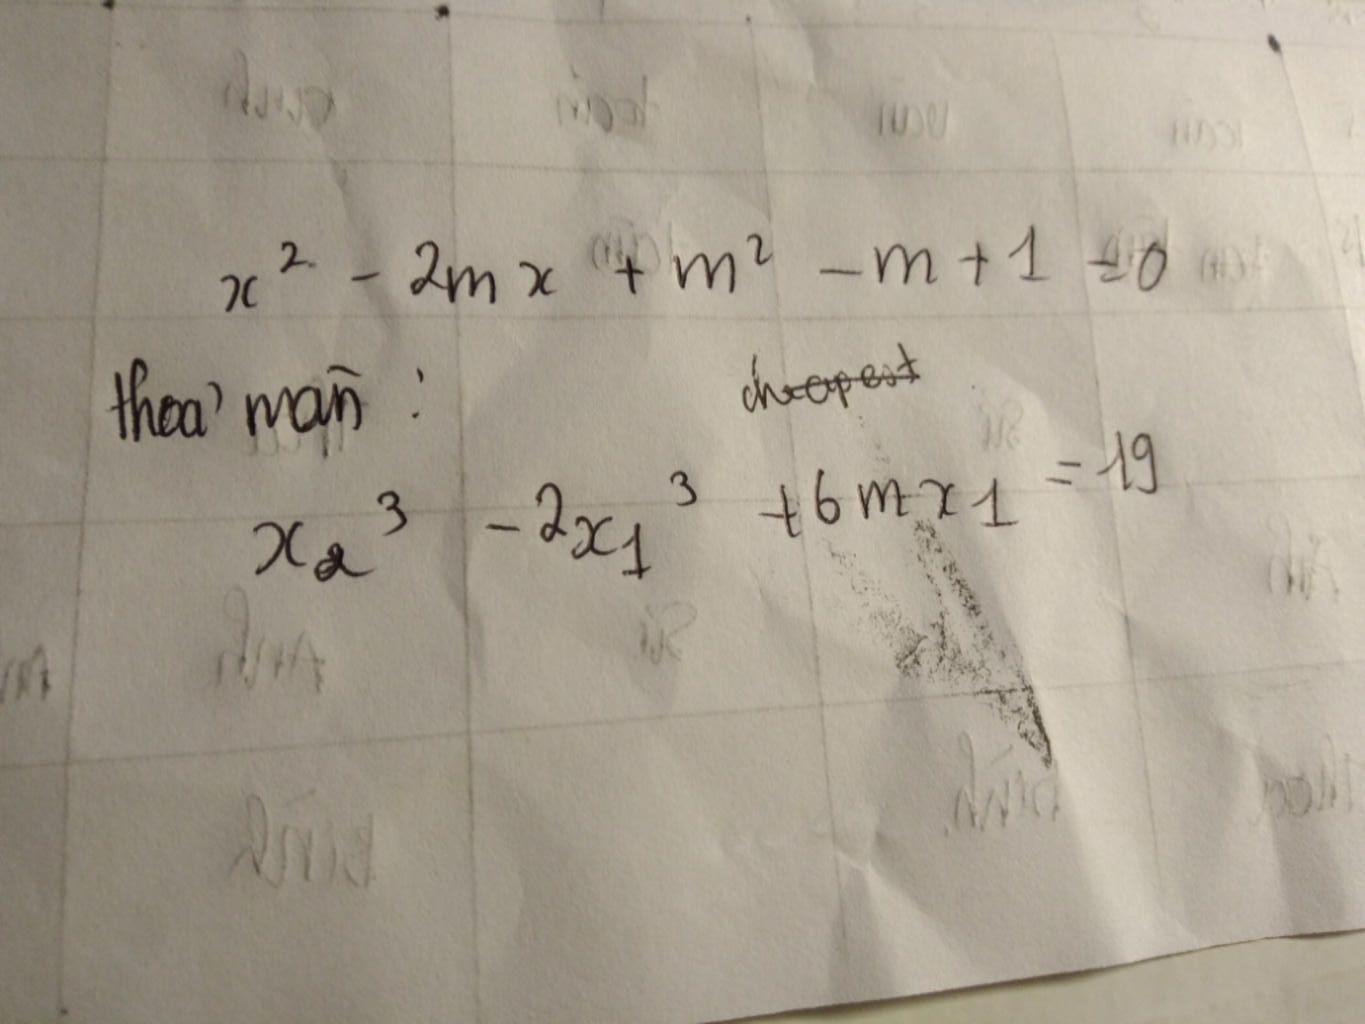 x² - 2mx + m² - m + 1 = 0
thoả mãn :
x₂³ - 2x₁³ + 6mx1 = 19